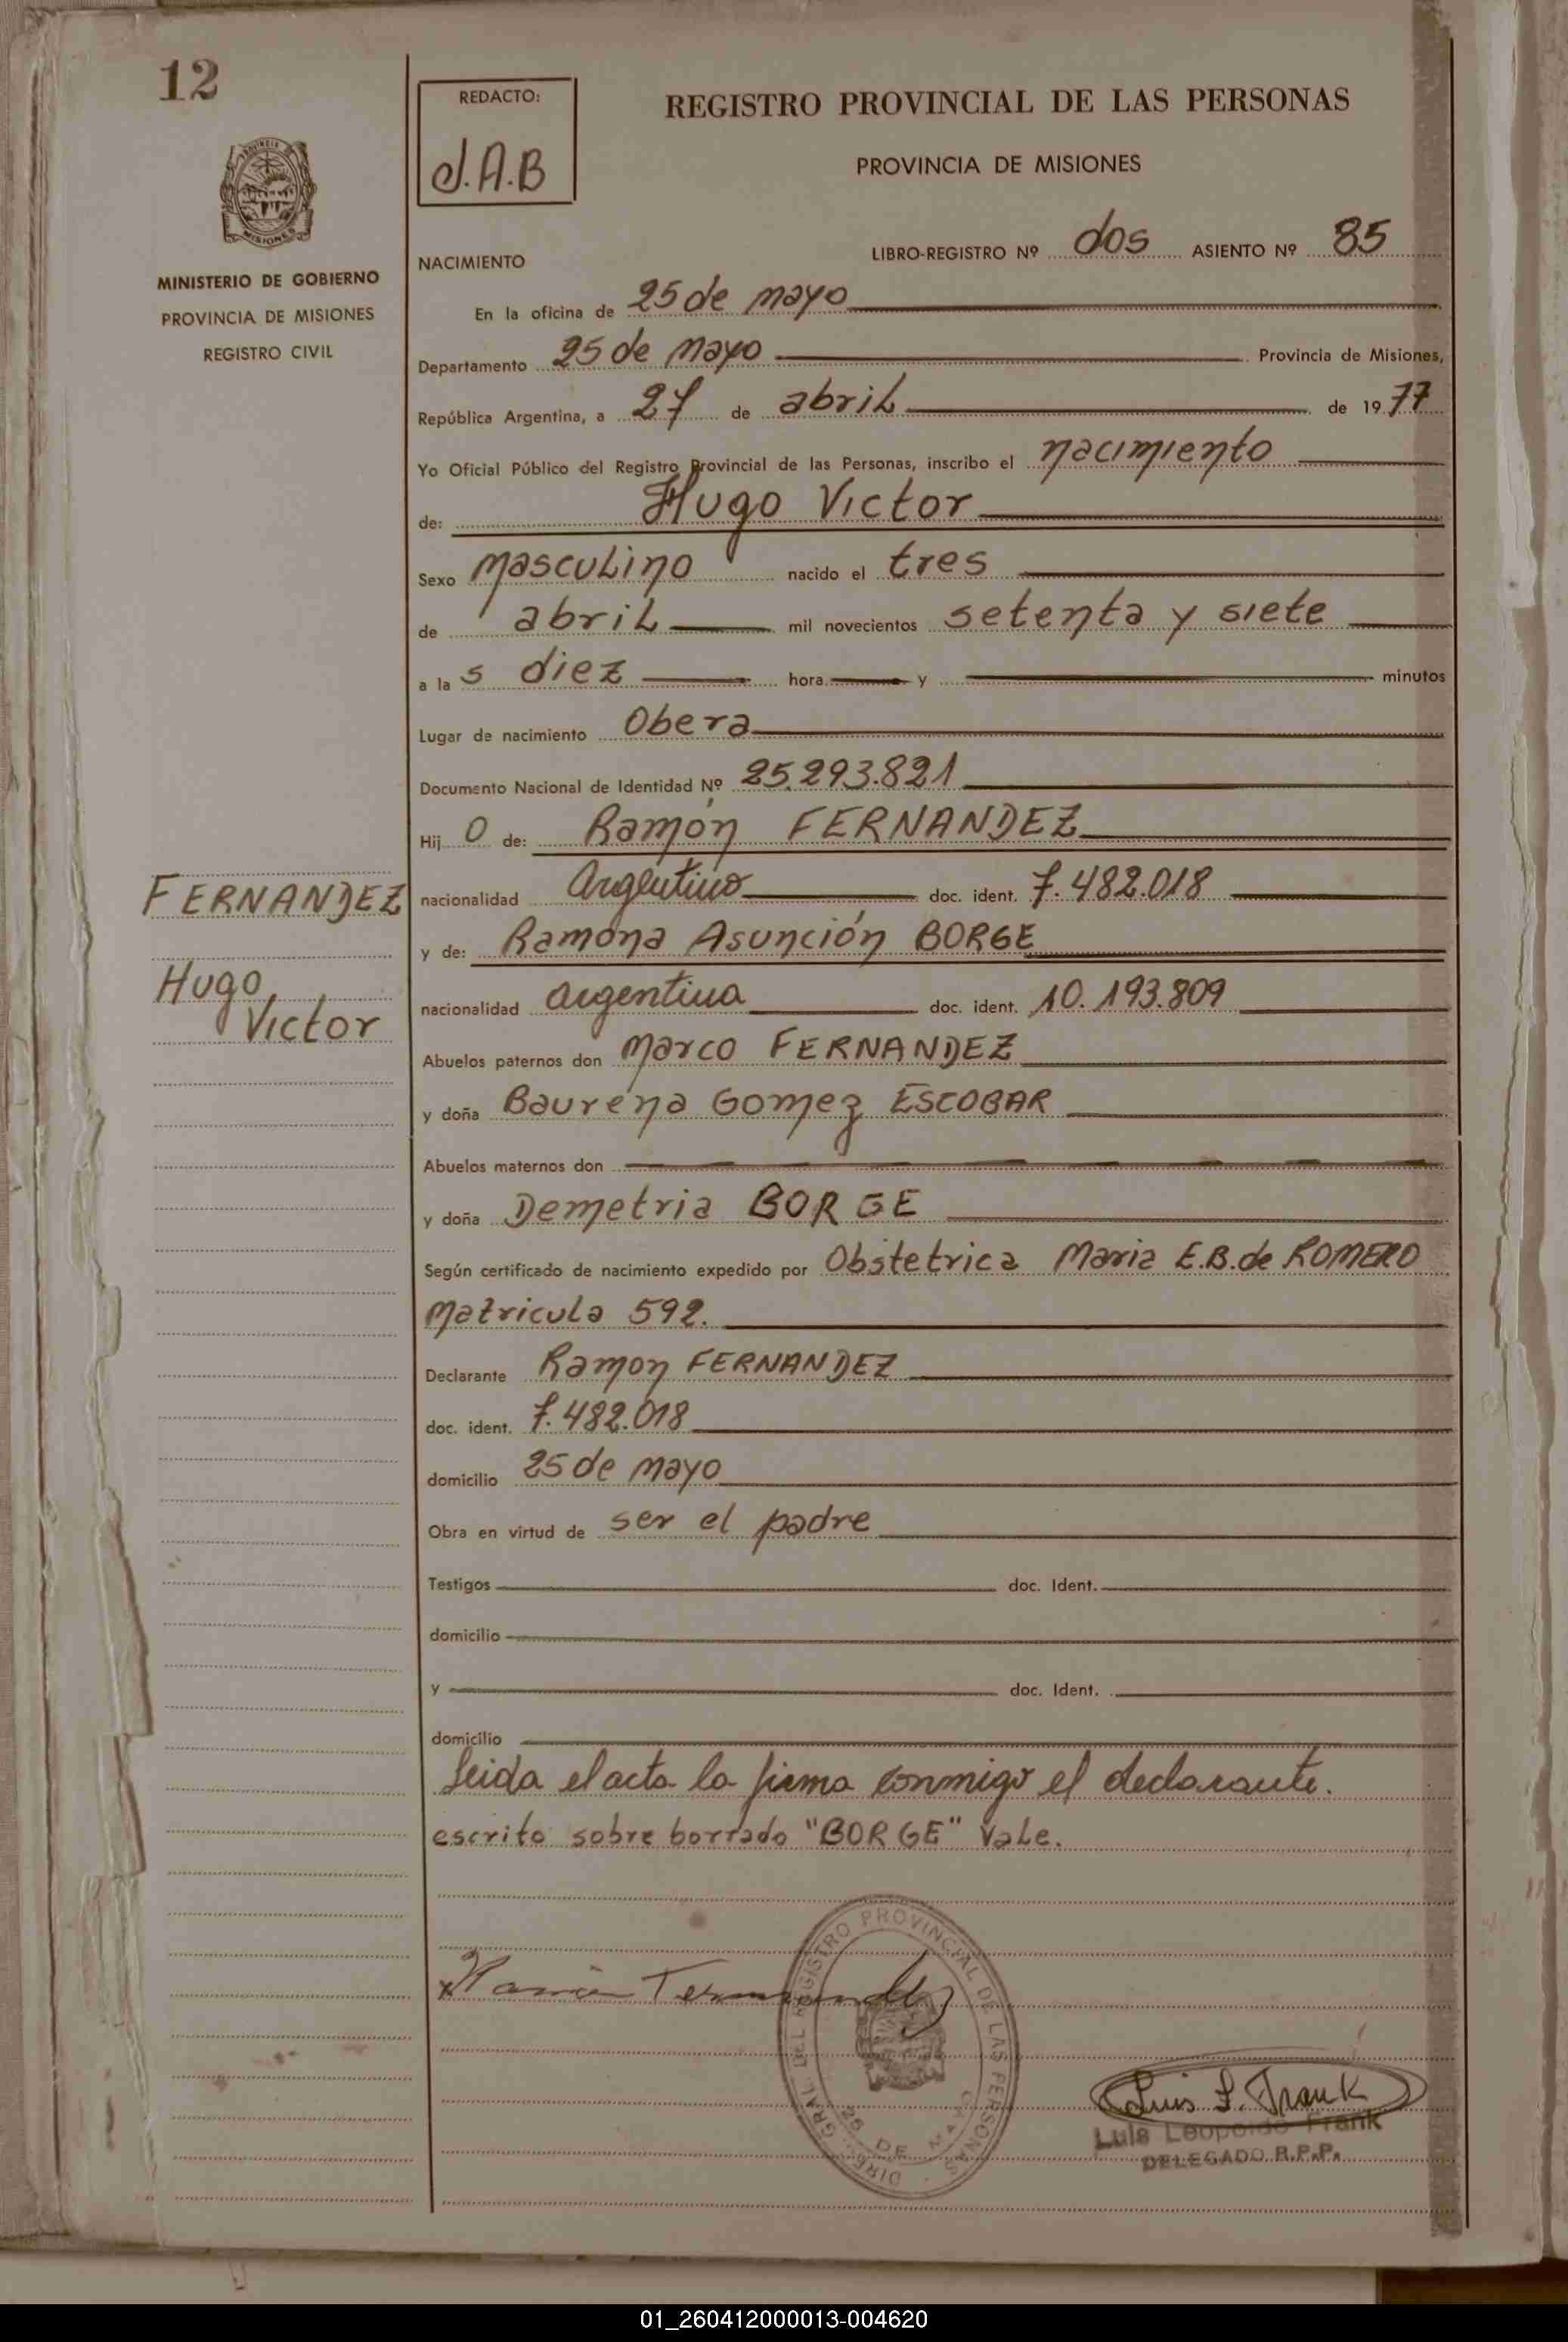 12
REDACTO:
J.A.B
REGISTRO PROVINCIAL DE LAS PERSONAS
PROVINCIA DE MISIONES
MISIONES
MINISTERIO DE GOBIERNO
PROVINCIA DE MISIONES
REGISTRO CIVIL
LIBRO-REGISTRO Nº dos ASIENTO Nº 85
NACIMIENTO
En la oficina de 25 de mayo
Departamento 25 de mayo Provincia de Misiones,
República Argentina, a 27 de abril de 1977
Yo Oficial Público del Registro Provincial de las Personas, inscribo el nacimiento
de: Hugo Victor
Sexo masculino nacido el tres
de abril mil novecientos setenta y siete
a la s diez hora y minutos
Lugar de nacimiento Obera
Documento Nacional de Identidad Nº 25.293.821
Hij o de: Ramón FERNANDEZ
FERNANDEZ
nacionalidad Argentino doc. ident. 7.482.018
y de: Ramona Asunción BORGE
Hugo
Victor
nacionalidad argentina doc. ident. 10.193.809
Abuelos paternos don Marco FERNANDEZ
y doña Baurena Gomez ESCOBAR
Abuelos maternos don
y doña Demetria BORGE
Según certificado de nacimiento expedido por Obstetrica Maria E.B. de ROMERO
Matricula 592.
Declarante Ramon FERNANDEZ
doc. ident. 7.482.018
domicilio 25 de mayo
Obra en virtud de ser el padre
Testigos doc. Ident.
domicilio
y doc. Ident.
domicilio
Leida el acta la firma conmigo el declarante.
escrito sobre borrado "BORGE" Vale.
Ramon Fernandez
DIREC. GRAL. DEL REGISTRO PROVINCIAL DE LAS PERSONAS
25 DE MAYO
Luis L. Frank
Luis Leopoldo Frank
DELEGADO R.P.P.
01_260412000013-004620